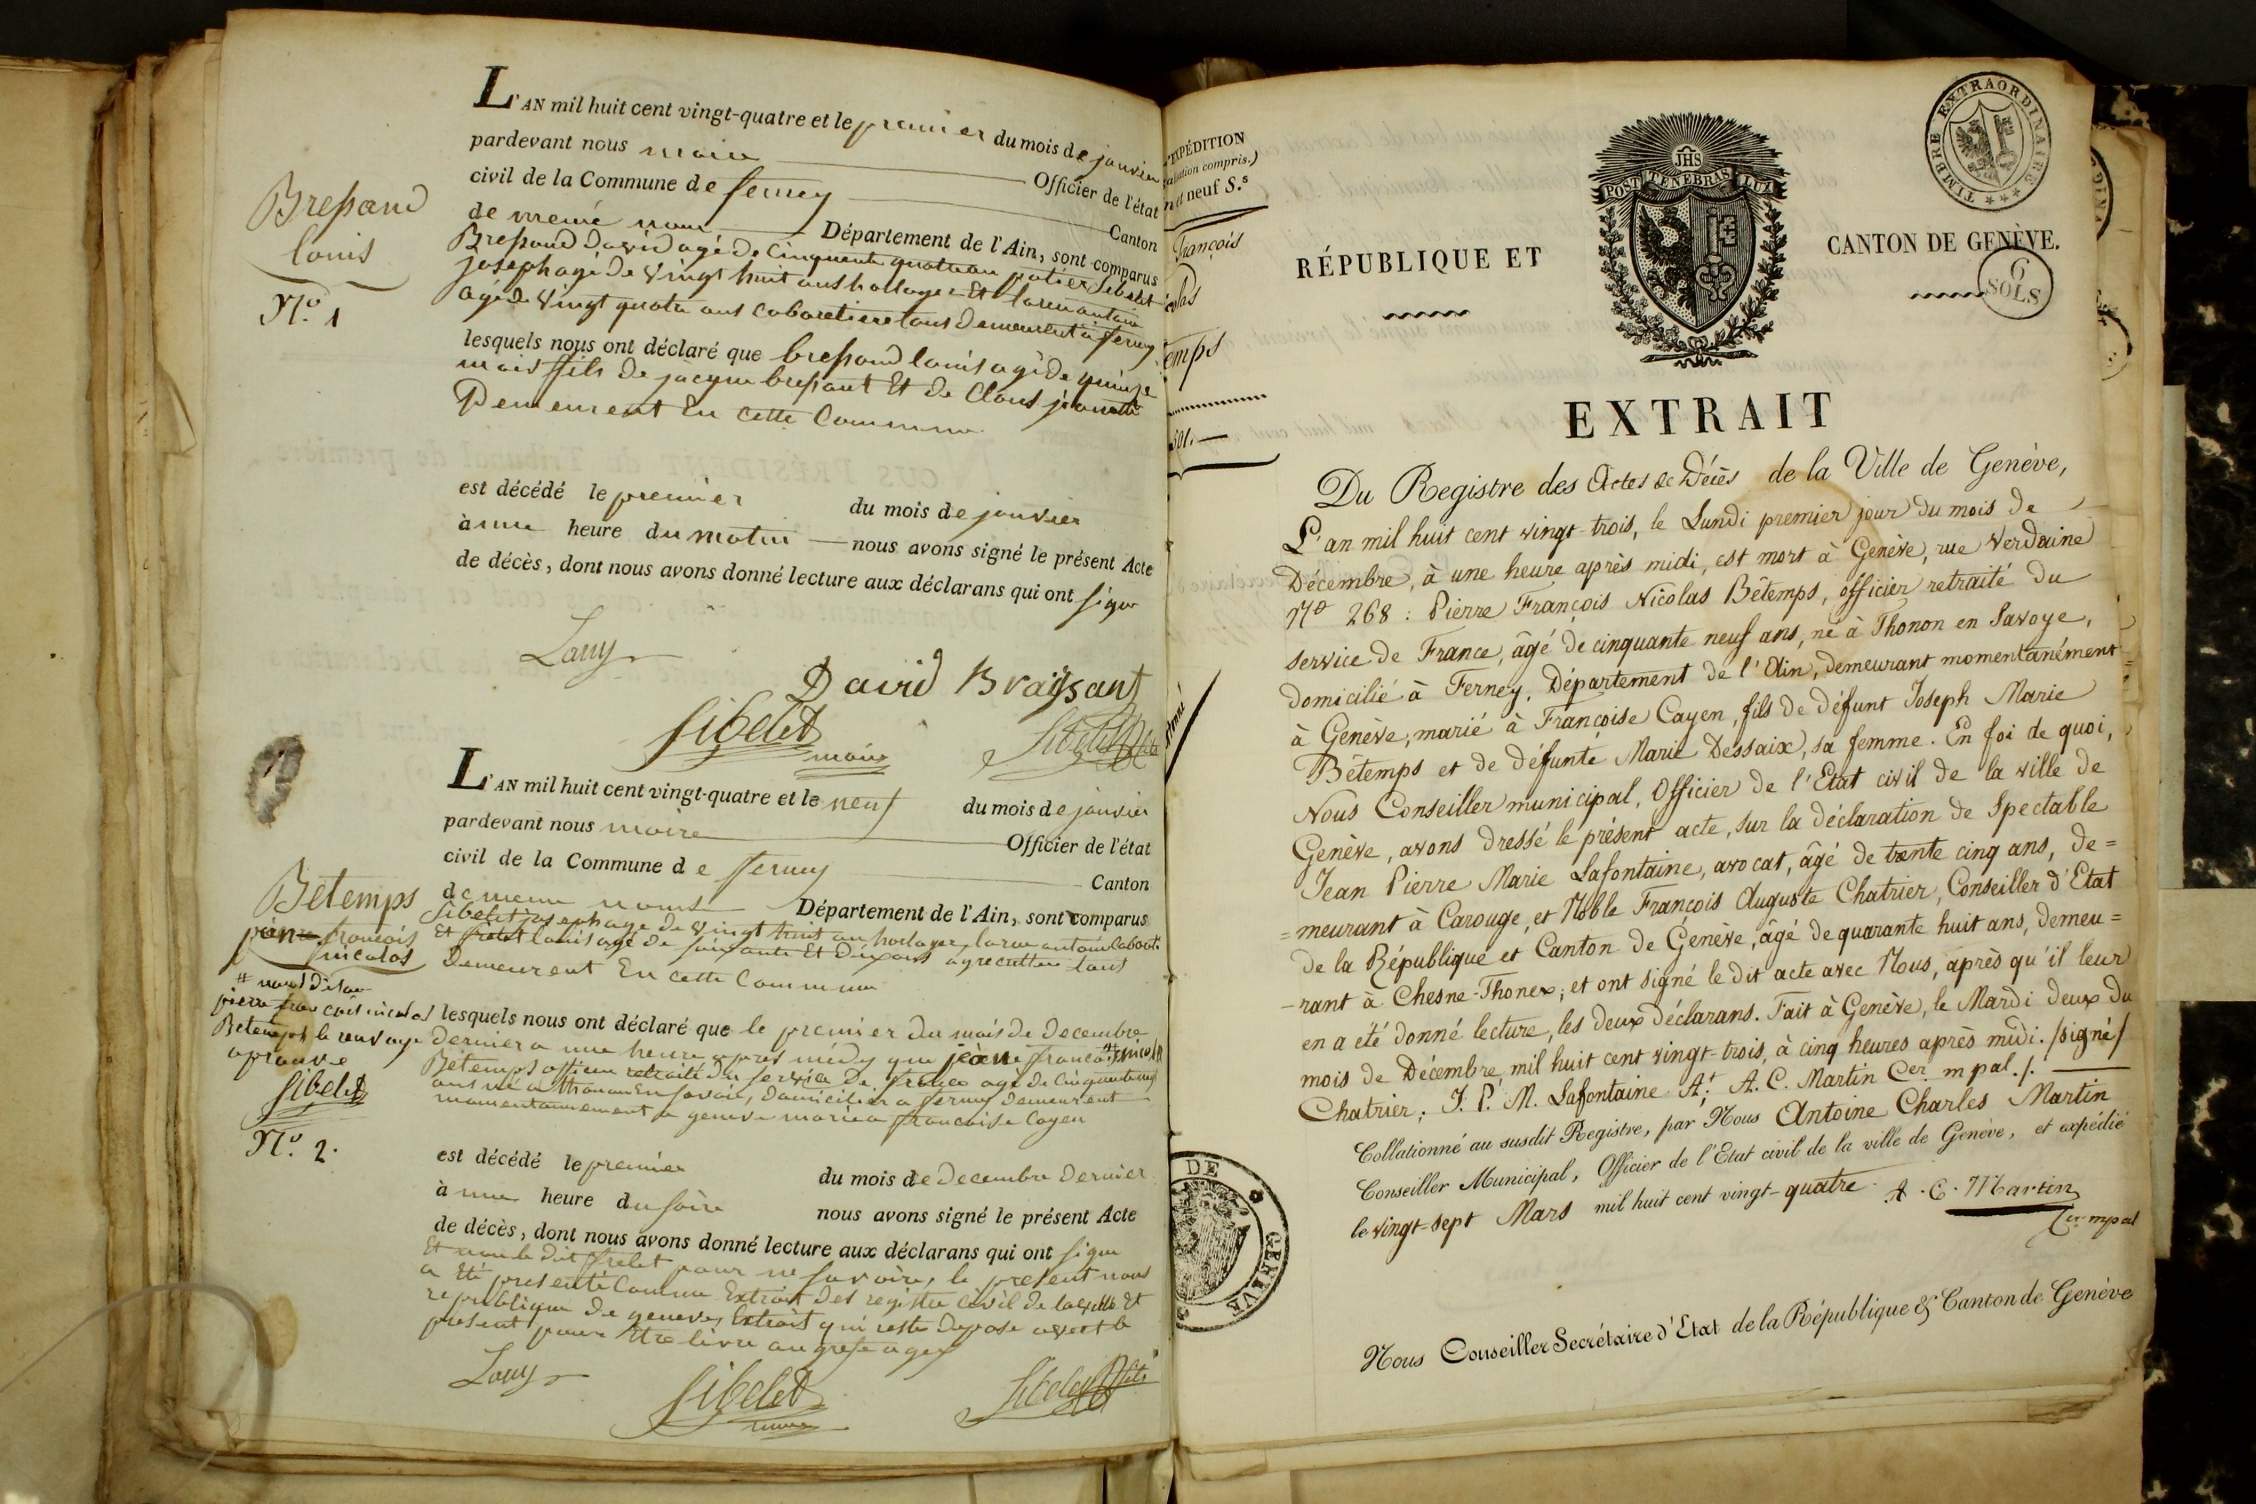 L'AN mil huit cent vingt-quatre et le premier du mois de janvier
pardevant nous maire Officier de l'état
civil de la Commune de ferney Canton
de meme nom Département de l'Ain, sont comparus
Breßand david agé de Cinquente quatre an potier Sibelet
joseph agé de vingt huit ans horloger Et larue antoine
agé de vingt quatre ans cabaretiere tous demeurent a ferney
lesquels nous ont déclaré que breßand louis agé de quinze
mois fils de jacque breßant Et de Claus janette
Demeurent En cette Commune
Breßand
louis
N.º 1
est décédé le premier du mois de janvier
à une heure du matin nous avons signé le présent Acte
de décès, dont nous avons donné lecture aux déclarans qui ont signe
Larry
David Braissant
Sibelet
maire
L'AN mil huit cent vingt-quatre et le neuf du mois de janvier
pardevant nous maire Officier de l'état
civil de la Commune de ferney Canton
de meme nom Département de l'Ain, sont comparus
Sibelet joseph age de vingt huit an horloger larue antoine
Et frelet louis age de soixante Et dix ans agreculteur tous
Demeurent En cette Commune
Bétemps
françois
nicolas
pierre françois nicolas
Betemps le renvoye
aprouve
Sibelet
N.º 2.
lesquels nous ont déclaré que le premier du mois de decembre
dernier a une heure apres midy que
Bétemps officier retraité du service de france agé de Cinquante neuf
ans né a thonon En savoie, domicilier a ferney demeurent
momentannement a geneve marie a francoise Cayen
est décédé le premier du mois de decembre dernier
à une heure du soire nous avons signé le présent Acte
de décès, dont nous avons donné lecture aux déclarans qui ont signe
Et non le dit frelet pour ne savoire, le present nous
a Eté presenté Comme Extrait des registre civil de la ville Et
republique de geneve, Extrait qui reste deposé avect le
present pour Etre livre au grefe a gex
Larry
Sibelet
maire
fils
EXPÉDITION
compris.)
neuf S.s
François
emps
sol.
DE GENEVE
TIMBRE EXTRAORDINAIRE
JHS
POST TENEBRAS LUX
RÉPUBLIQUE ET CANTON DE GENÈVE.
6
SOLS
EXTRAIT
Du Registre des Actes de Décès de la Ville de Genève,
L'an mil huit cent vingt-trois, le Lundi premier jour du mois de
Décembre, à une heure après midi, est mort à Genève, rue Verdaine
N.º 268 : Pierre François Nicolas Bêtemps, officier retraité du
service de France, âgé de cinquante neuf ans, né à Thonon en Savoye,
domicilié à Ferney, Département de l'Ain, demeurant momentanément
à Genève, marié à Françoise Cayen, fils de défunt Joseph Marie
Bêtemps et de défunte Marie Dessaix, sa femme. En foi de quoi,
Nous Conseiller municipal, Officier de l'Etat civil de la ville de
Genève, avons dressé le présent acte, sur la déclaration de Spectable
Jean Pierre Marie Lafontaine, avocat, âgé de trente cinq ans, de=
=meurant à Carouge, et Noble François Auguste Chatrier, Conseiller d'Etat
de la République et Canton de Genève, âgé de quarante huit ans, demeu=
-rant à Chesne-Thonex; et ont signé le dit acte avec Nous, après qu'il leur
en a été donné lecture, les deux déclarans. Fait à Genève, le Mardi deux du
mois de Décembre, mil huit cent vingt-trois, à cinq heures après midi. /signé/
Chatrier; J. P. M. Lafontaine A.t A. C. Martin Cer. mpal./.
Collationné au susdit Registre, par Nous Antoine Charles Martin
Conseiller Municipal, Officier de l'Etat civil de la ville de Genève, et expédié
le vingt-sept Mars mil huit cent vingt-quatre. A. C. Martin
Cer. mpal
Nous Conseiller Secrétaire d'Etat de la République & Canton de Genève